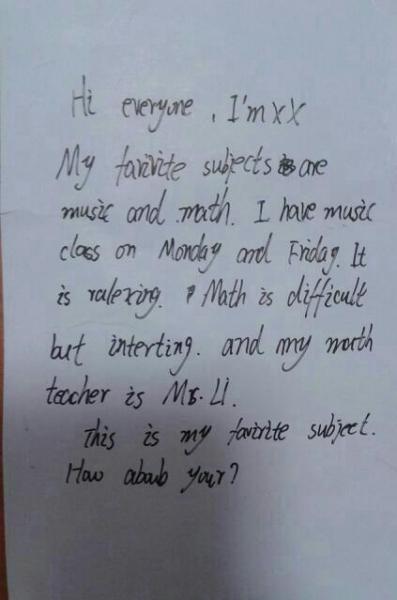 Hi everyone, I'm XX
My favivite subjects are
music and math. I have music
class on Monday and Friday. It
is ralexing. Math is difficult
but interting. and my math
teacher is Mr. Li.
This is my favirite subject.
How about your?